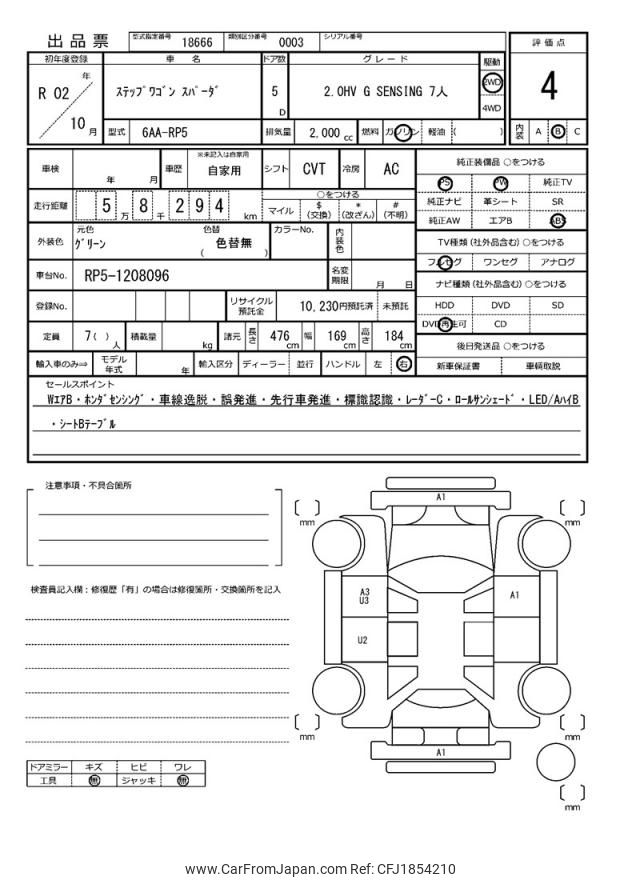 出品票 型式指定番号 18666 類別区分番号 0003 シリアル番号
評価点
4
初年度登録 車名 ドア数 グレード 駆動
R 02 年 10 月
ステップワゴン スパーダ
5 D
2.0HV G SENSING 7人
2WD
4WD
型式 6AA-RP5 排気量 2,000 cc 燃料 ガソリン 軽油 ( )
内装 A B C
車検 年 月 車歴 ※未記入は自家用 自家用 シフト CVT 冷房 AC
走行距離 5万 8千 2 9 4 km
○をつける
マイル $(交換) *(改ざん) #(不明)
外装色 元色 グリーン 色替 色替無 ( ) カラーNo. 内装色
車台No. RP5-1208096 名変期限 月 日
登録No. リサイクル預託金 10,230円預託済 未預託
定員 7( )人 積載量 kg 諸元 長さ 476 cm 幅 169 cm 高さ 184 cm
輸入車のみ⇒ モデル年式 年 輸入区分 ディーラー 並行 ハンドル 左 右
純正装備品 ○をつける
PS PW 純正TV
純正ナビ 革シート SR
純正AW エアB ABS
TV種類 (社外品含む) ○をつける
フルセグ ワンセグ アナログ
ナビ種類 (社外品含む) ○をつける
HDD DVD SD
DVD再生可 CD
後日発送品 ○をつける
新車保証書 車輌取説
セールスポイント
WエアB・ホンダセンシング・車線逸脱・誤発進・先行車発進・標識認識・レーダーC・ロールサンシェード・LED/AハイB
・シートBテーブル
注意事項・不具合箇所
検査員記入欄：修復歴「有」の場合は修復箇所・交換箇所を記入
ドアミラー キズ ヒビ ワレ
工具 無 ジャッキ 無
A1
mm mm
A3
U3
A1
U2
mm mm
A1
mm
www.CarFromJapan.com Ref: CFJ1854210